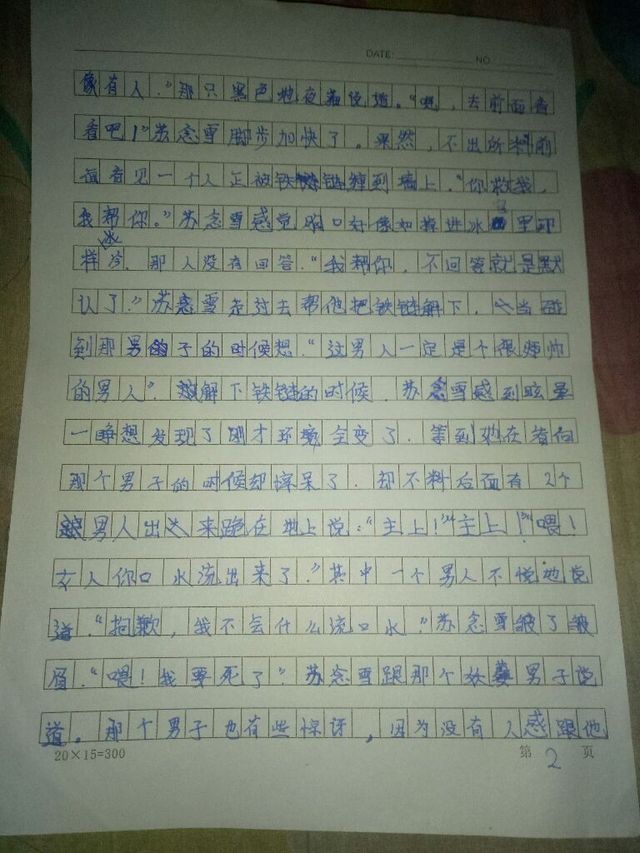 DATE: NO
像有人.”那只黑色地夜猫说道.“嗯,去前面看
看吧!”苏念雪脚步加快了。果然,不出所料前
面看见一个人正被铁链缠到墙上.“你救我,
我帮你。”苏念雪感觉胸口好像如掉进冰里那
样冰冷.那人没有回答.“我帮你,不回答就是默
认了.”苏念雪走过去帮他把铁链解下,当碰
到那男子的时候想.“这男人一定是个很帅帅
的男人”.解下铁链的时候,苏念雪感到眩晕
一睁想发现了刚才环境全变了.等到她在看向
那个男子的时候却惊呆了.却不料后面有2个
男人出来跪在地上说:“主上!”“主上!”“喂!
女人你口水流出来了.”其中一个男人不悦地说
道.“抱歉,我不会什么流口水.”苏念雪皱了皱
眉.“喂!我要死了”.苏念雪跟那个妖孽男子说
道。那个男子也有些惊讶,因为没有人感跟他
20×15=300
第2页